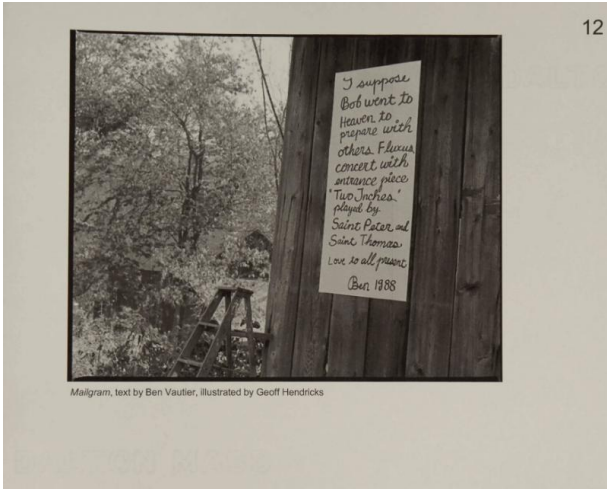 12
I suppose
Bob went to
Heaven to
prepare with
others Fluxus
concert with
entrance piece
"Two Inches"
played by
Saint Peter and
Saint Thomas
Love to all present
Ben 1988
Mailgram, text by Ben Vautier, illustrated by Geoff Hendricks